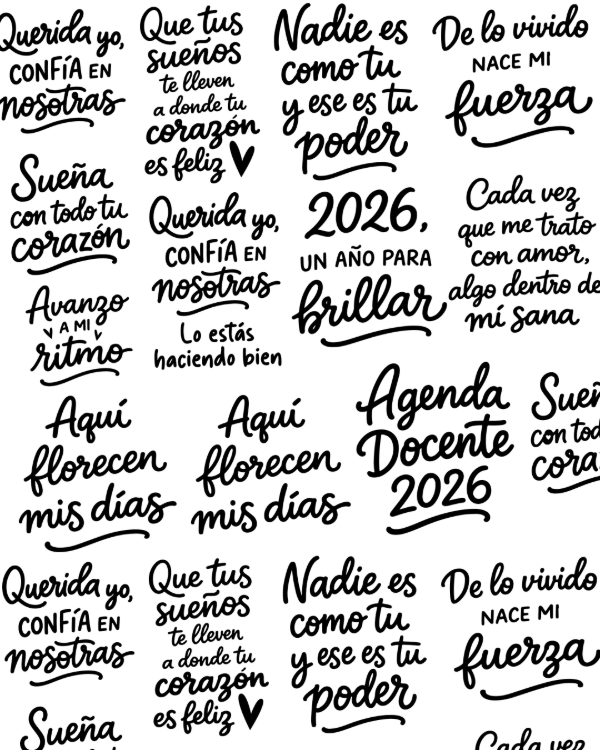 Querida yo,
CONFÍA EN
nosotras
Que tus
sueños
te lleven
a donde tu
corazón
es feliz
Nadie es
como tu
y ese es tu
poder
De lo vivido
NACE MI
fuerza
Sueña
con todo tu
corazón
Querida yo,
CONFÍA EN
nosotras
2026,
UN AÑO PARA
brillar
Cada vez
que me trato
con amor,
algo dentro de
mí sana
Avanzo
A MI
ritmo
Lo estás
haciendo bien
Aquí
florecen
mis días
Aquí
florecen
mis días
Agenda
Docente
2026
Sueñ
con tod
cora
Querida yo,
CONFÍA EN
nosotras
Que tus
sueños
te lleven
a donde tu
corazón
es feliz
Nadie es
como tu
y ese es tu
poder
De lo vivido
NACE MI
fuerza
Sueña
Cada vez